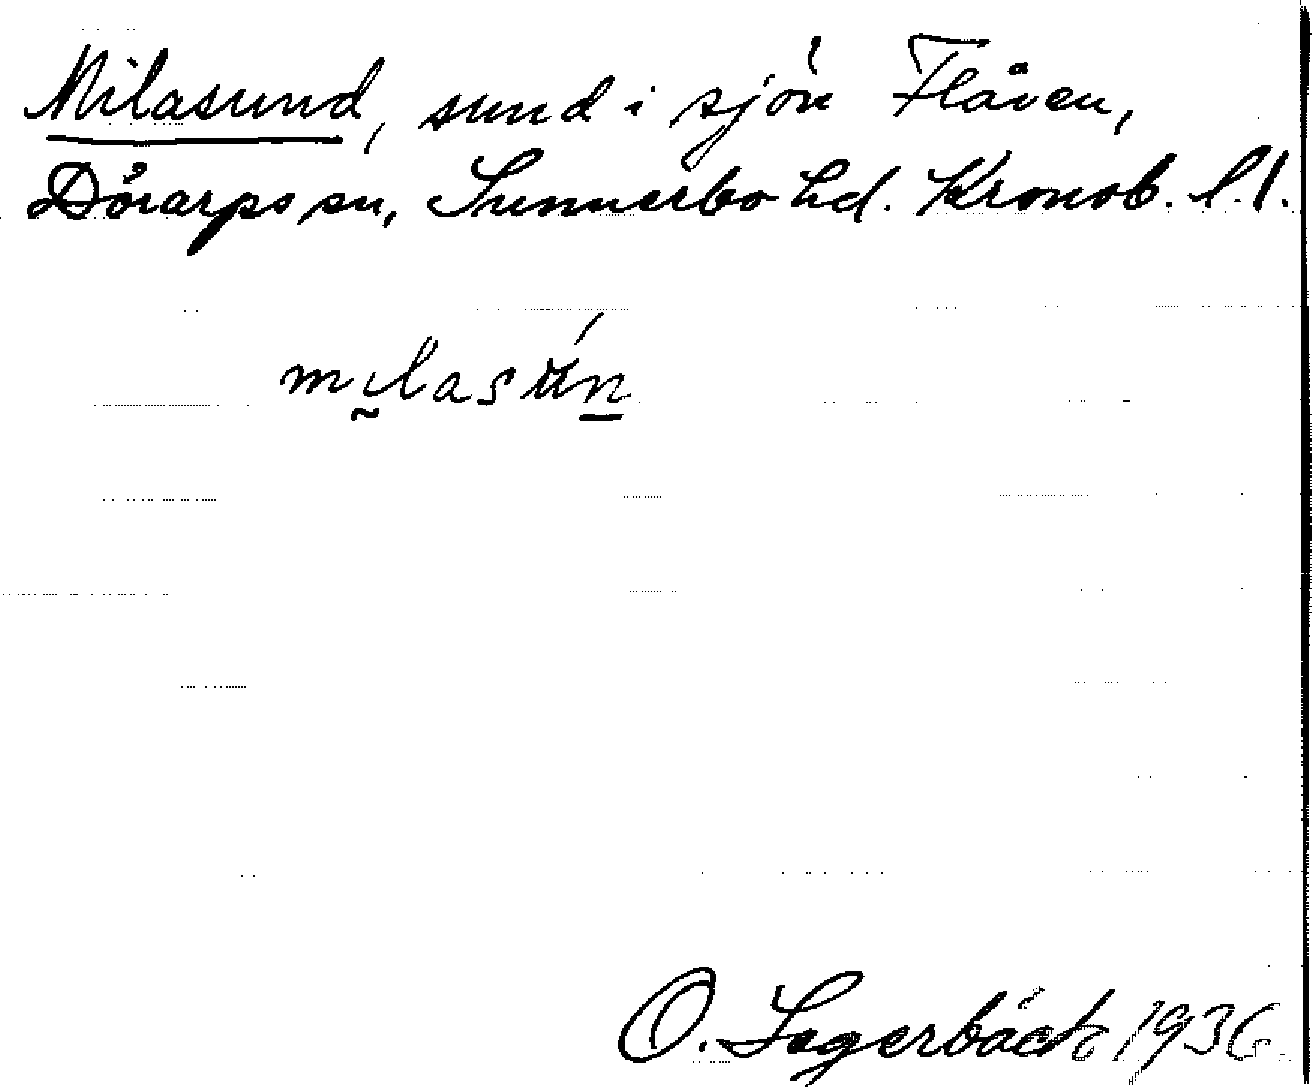 Milasund, sund i sjön Flåen,
Dörarps sn, Sunnerbo hd. Kronob. l.
milasún
O. Lagerbäck 1936.